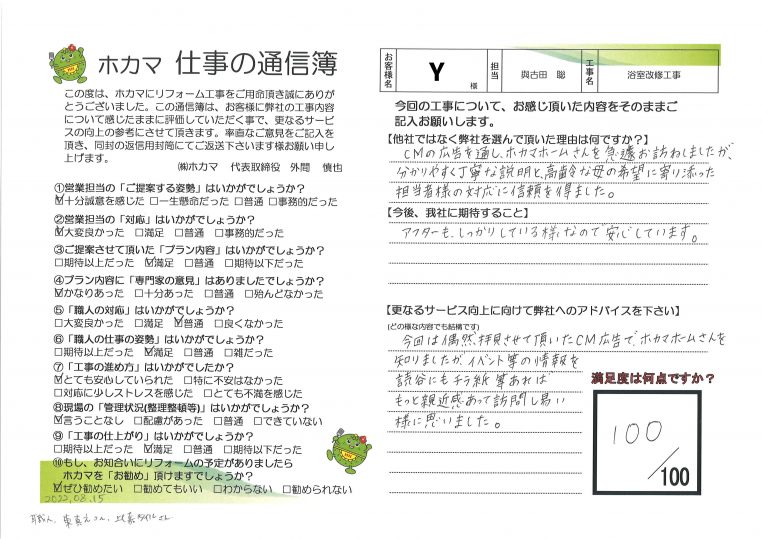 ホカマ 仕事の通信簿
この度は、ホカマにリフォーム工事をご用命頂き誠にありが
とうございました。この通信簿は、お客様に弊社の工事内容
について感じたままに評価していただく事で、更なるサービ
スの向上の参考にさせて頂きます。率直なご意見をご記入を
頂き、同封の返信用封筒にてご返送下さいます様お願い申し
上げます。
㈱ホカマ 代表取締役 外間 慎也
①営業担当の「ご提案する姿勢」はいかがでしょうか?
☑十分誠意を感じた □一生懸命だった □普通 □事務的だった
②営業担当の「対応」はいかがでしょうか?
☑大変良かった □満足 □普通 □事務的だった
③ご提案させて頂いた「プラン内容」はいかがでしょうか?
□期待以上だった ☑満足 □普通 □期待以下だった
④プラン内容に「専門家の意見」はありましたでしょうか?
☑かなりあった □十分あった □普通 □殆んどなかった
⑤「職人の対応」はいかがでしょうか?
□大変良かった □満足 ☑普通 □良くなかった
⑥「職人の仕事の姿勢」はいかがでしょうか?
□期待以上だった ☑満足 □普通 □雑だった
⑦「工事の進め方」はいかがでしたか?
☑とても安心していられた □特に不安はなかった
□対応に少しストレスを感じた □とても不満を感じた
⑧現場の「管理状況(整理整頓等)」はいかがでしょうか?
☑言うことなし □配慮があった □普通 □できていない
⑨「工事の仕上がり」はいかがでしょうか?
□期待以上だった ☑満足 □普通 □期待以下だった
⑩もし、お知合いにリフォームの予定がありましたら
ホカマを「お勧め」頂けますでしょうか?
☑ぜひ勧めたい □勧めてもいい □わからない □勧められない
2022.03.15
お客様名 Y 様 担当 與古田 聡 工事名 浴室改修工事
今回の工事について、お感じ頂いた内容をそのままご
記入お願いします。
【他社ではなく弊社を選んで頂いた理由は何ですか?】
CMの広告を通し、ホカマホームさんを急遽お訪ねしましたが、
分かりやすく丁寧な説明と、高齢な母の希望に寄り添った
担当者様の対応に信頼を得ました。
【今後、我社に期待すること】
アフターも、しっかりしている様なので安心しています。
【更なるサービス向上に向けて弊社へのアドバイスを下さい】
(どの様な内容でも結構です)
今回は偶然、拝見させて頂いたCM広告で、ホカマホームさんを
知りましたが、イベント等の情報を
読谷にもチラ紙等あれば
もっと親近感あって訪問し易い
様に思いました。
満足度は何点ですか?
100
/100